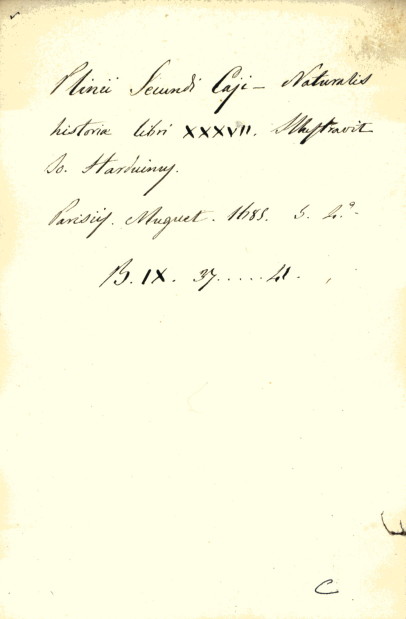 Plinii Secundi Caji - Naturalis
historia libri XXXVII. Illustravit
Jo. Harduinus.
Parisiis. Muguet. 1685. 5. 4°.
B. IX. 37.....41.
C